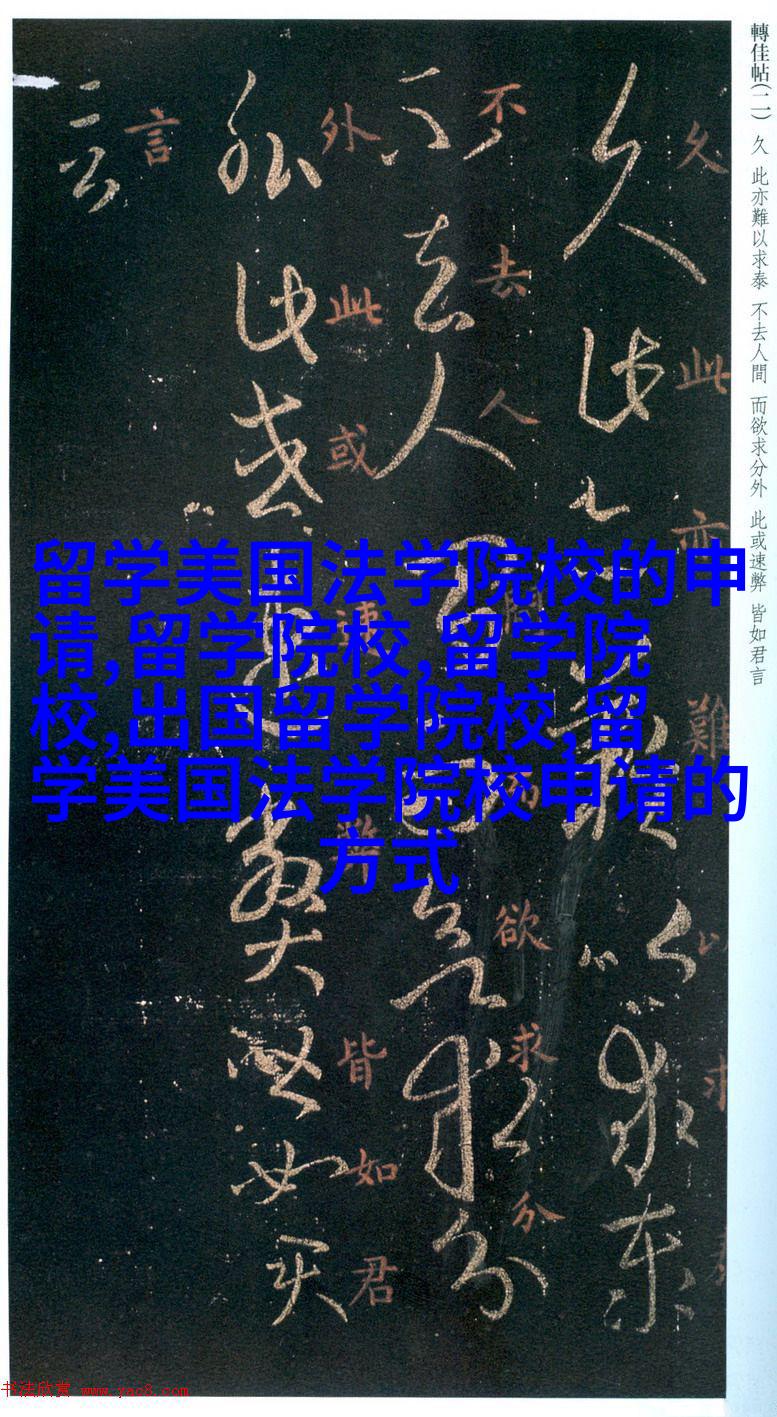 轉佳帖(二) 久 此亦難以求泰 不去人間 而欲求分外 此或速弊 皆如君言
久此亦難以求
不去人間而欲求分
外此或速弊皆如君
言
留学美国法学院校的申
请,留学院校,留学院
校,出国留学院校,留
学美国法学院校申请的
方式
书法欣赏 www.yac8.com